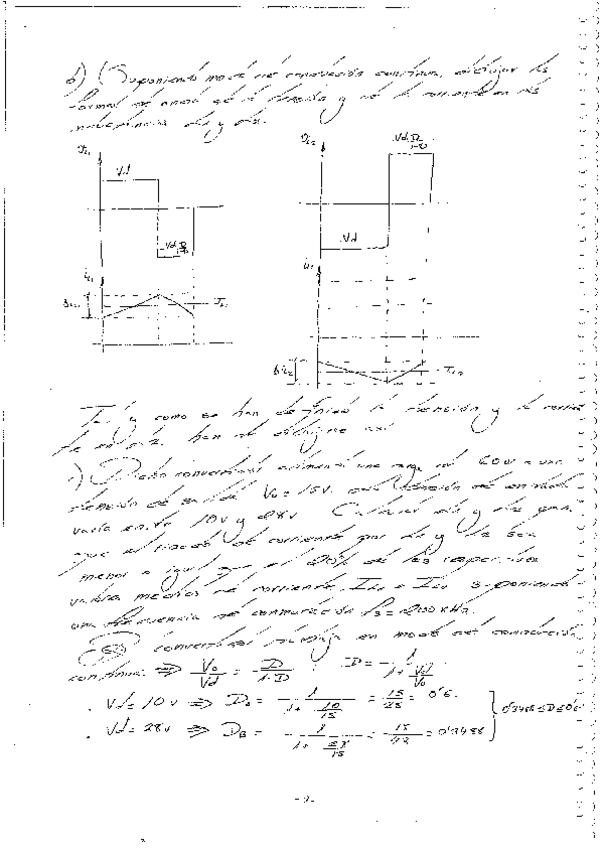 b) (Suponiendo modo de conducción continua, dibujar las
formas de onda de la tensión y de la corriente en las
inductancias L1 y L2.
Vd
Vd D/1-D
-Vd D/1-D
-Vd
Tal y como se han definido la tensión y la corriente
en L2, han de dibujarse así
c) Dicho convertidor alimenta una carga de 60W a una
tensión de salida Vo = 15V. La tensión de entrada
varía entre 10V y 28V. Calcular L1 y L2 para
que el rizado de corriente por L1 y L2 sea
menor o igual que el 20% de los respectivos
valores medios de corriente, IL1 e IL2 suponiendo
una frecuencia de conmutación fs = 200 kHz.
convertidor trabaja en modo de conducción
continua ⇒ Vo/Vd = D/1-D ; D = 1/(1+Vd/Vo)
. Vd = 10V ⇒ = 1/(1+10/15) = 15/25 = 0'6.
. Vd = 28V ⇒ = 1/(1+28/15) = 15/43 = 0'3488
0'3488 ≤ D ≤ 0'6